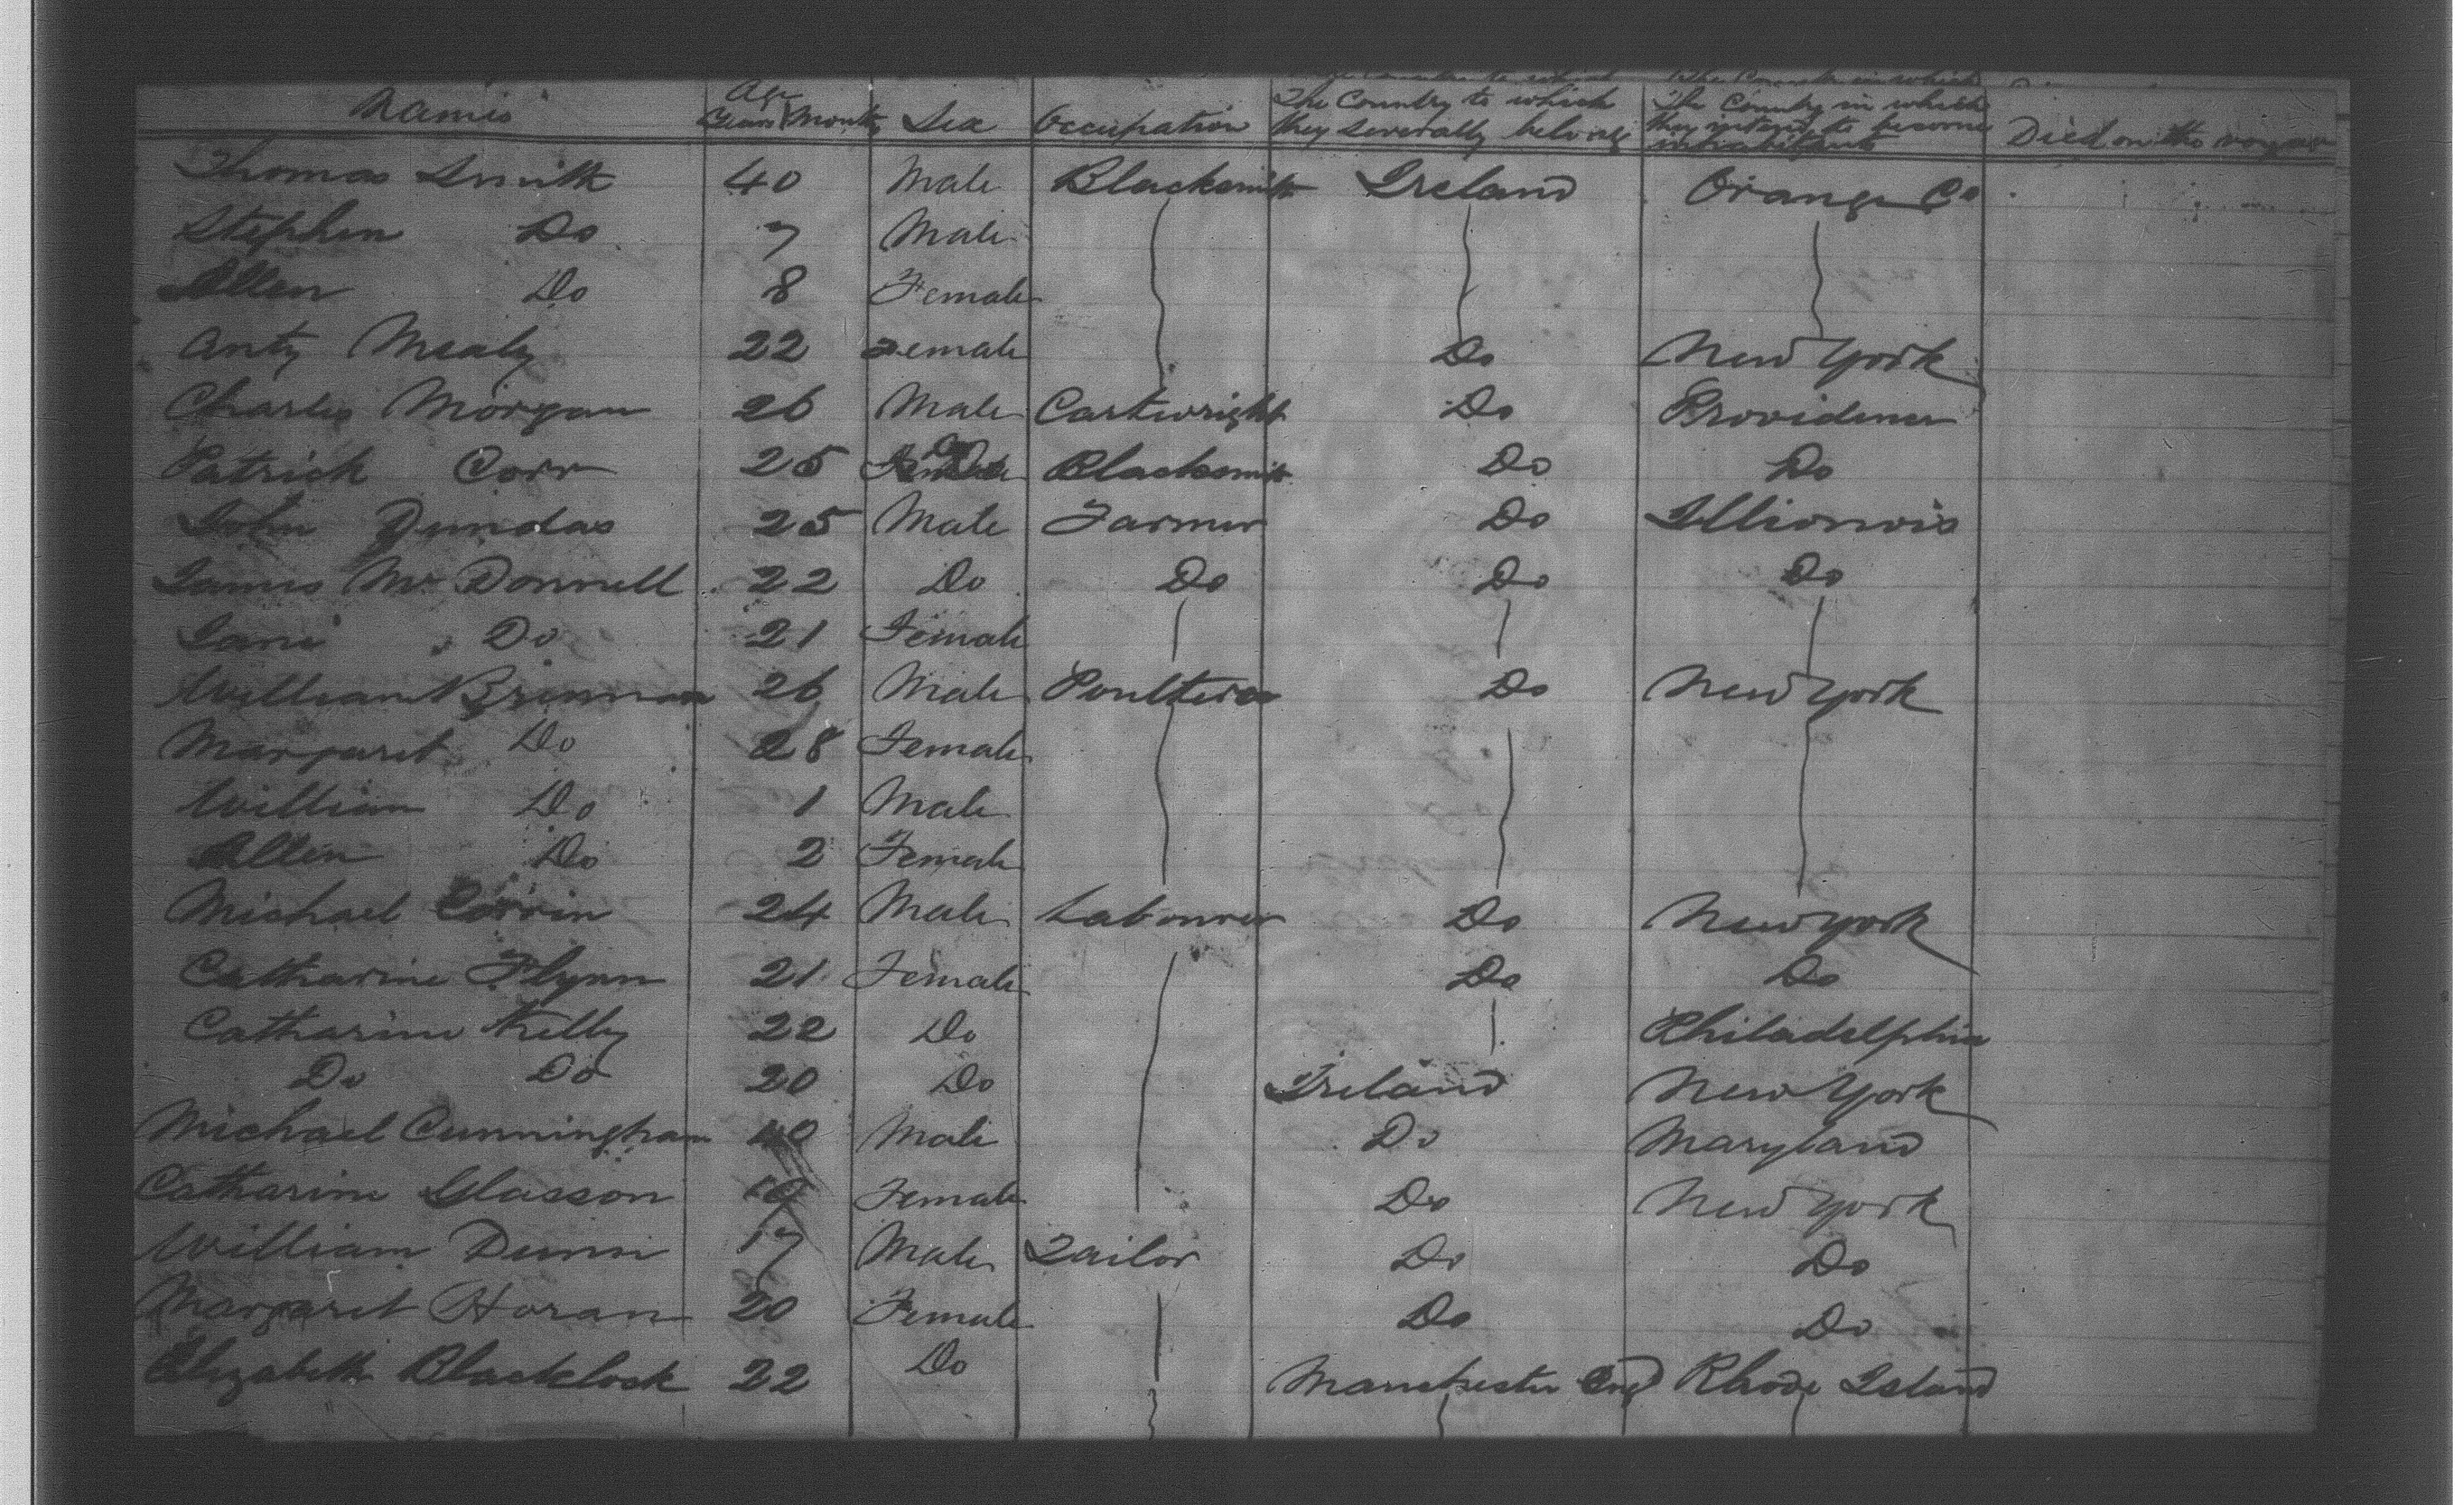 Names Age Years Months Sex Occupation The Country to which they severally belong The Country in which they intend to become inhabitants Died on the voyage
Thomas Smith 40 Male Blacksmith Ireland Orange Co
Stephen Do 7 Male
Ellen Do 8 Female
Anty Mealy 22 Female Do New York
Charles Morgan 26 Male Cartwright Do Providence
Patrick Corr 25 Do Blacksmith Do Do
John Dundas 25 Male Farmer Do Illionois
James Mc Donnell 22 Do Do Do Do
Jane Do 21 Female
William Brennan 26 Male Poulterer Do New York
Margaret Do 28 Female
William Do 1 Male
Ellen Do 2 Female
Michael Corrin 24 Male Labourer Do New York
Catharine Flynn 21 Female Do Do
Catharine Kelly 22 Do Philadelphia
Do Do 20 Do Ireland New York
Michael Cunningham 40 Male Do Maryland
Catharine Glasson 19 Female Do New York
William Dunn 17 Male Tailor Do Do
Margaret Horan 20 Female Do Do
Elizabeth Blacklock 22 Do Manchester Eng Rhode Island